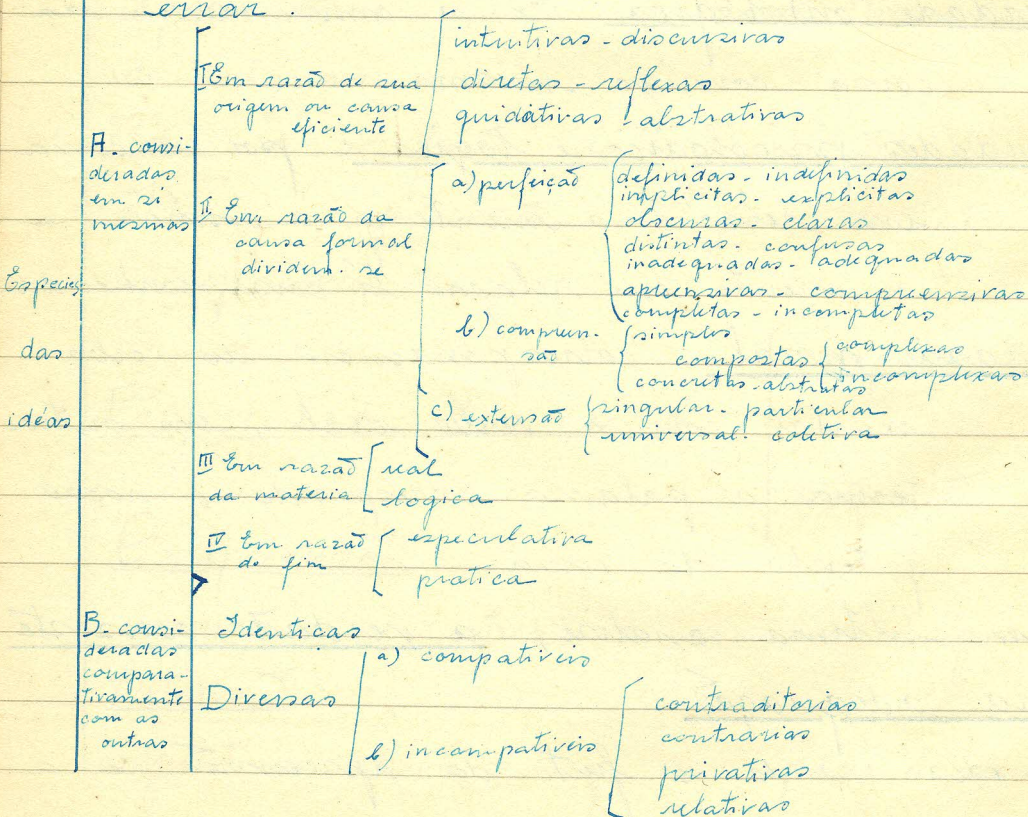 errar.
Especies
das
idéas
A. consi-
deradas
em si
mesmas
I Em razão de sua
origem ou causa
eficiente
intuitivas - discursivas
diretas - reflexas
quidátivas - abstrativas
II Em razão da
causa formal
dividem-se
a) perfeição
definidas - indefinidas
implicitas - explicitas
obscuras - claras
distintas - confusas
inadequadas - adequadas
apreensivas - compreensivas
completas - incompletas
b) compreen-
são
simples
compostas
complexas
incomplexas
concretas - abstratas
c) extensão
singular - particular
universal - coletiva
III Em razão
da materia
real
logica
IV Em razão
do fim
especulativa
pratica
B. consi-
deradas
compara-
tivamente
com as
outras
Identicas
Diversas
a) compativeis
b) incompativeis
contraditorias
contrarias
privativas
relativas